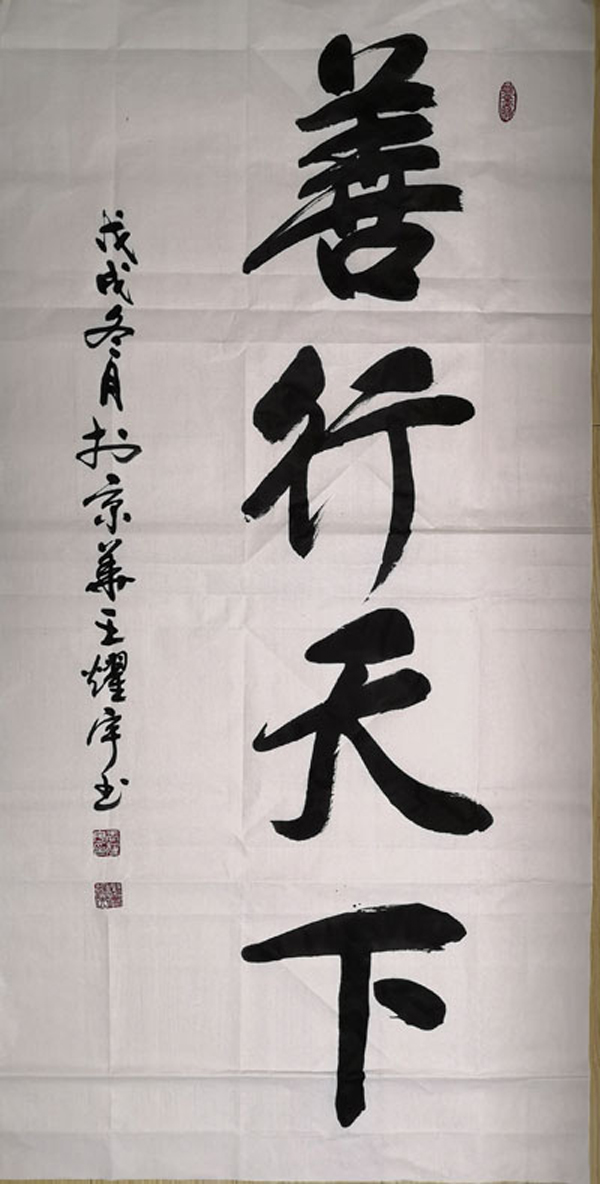 善行天下
戊戌冬月於京華王耀宇书